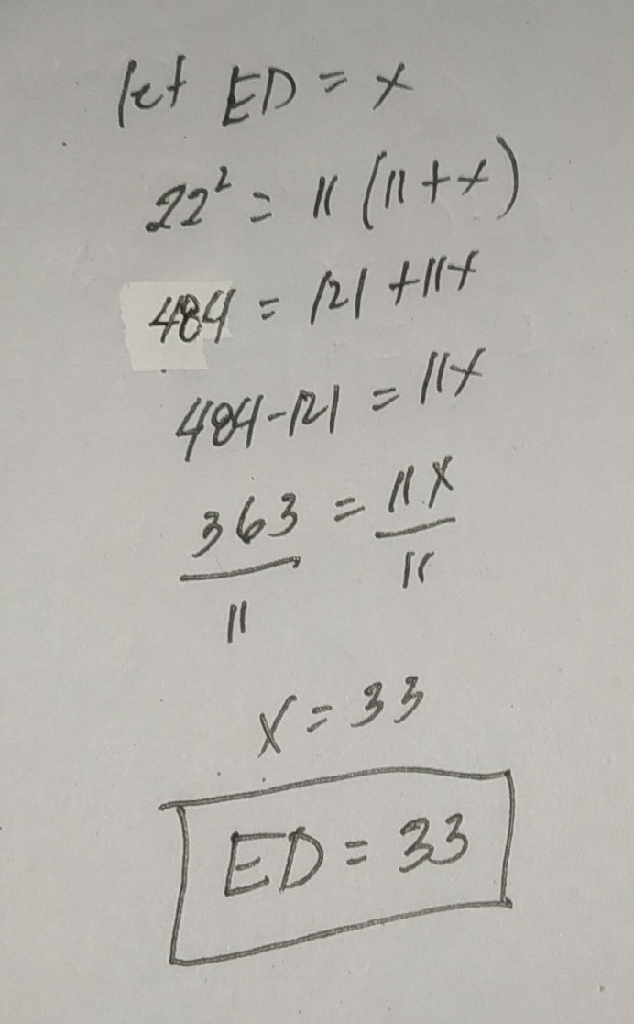 let ED = x
22² = 11 (11 + x)
484 = 121 + 11x
484 - 121 = 11x
363 = 11x
11 11
x = 33
ED = 33